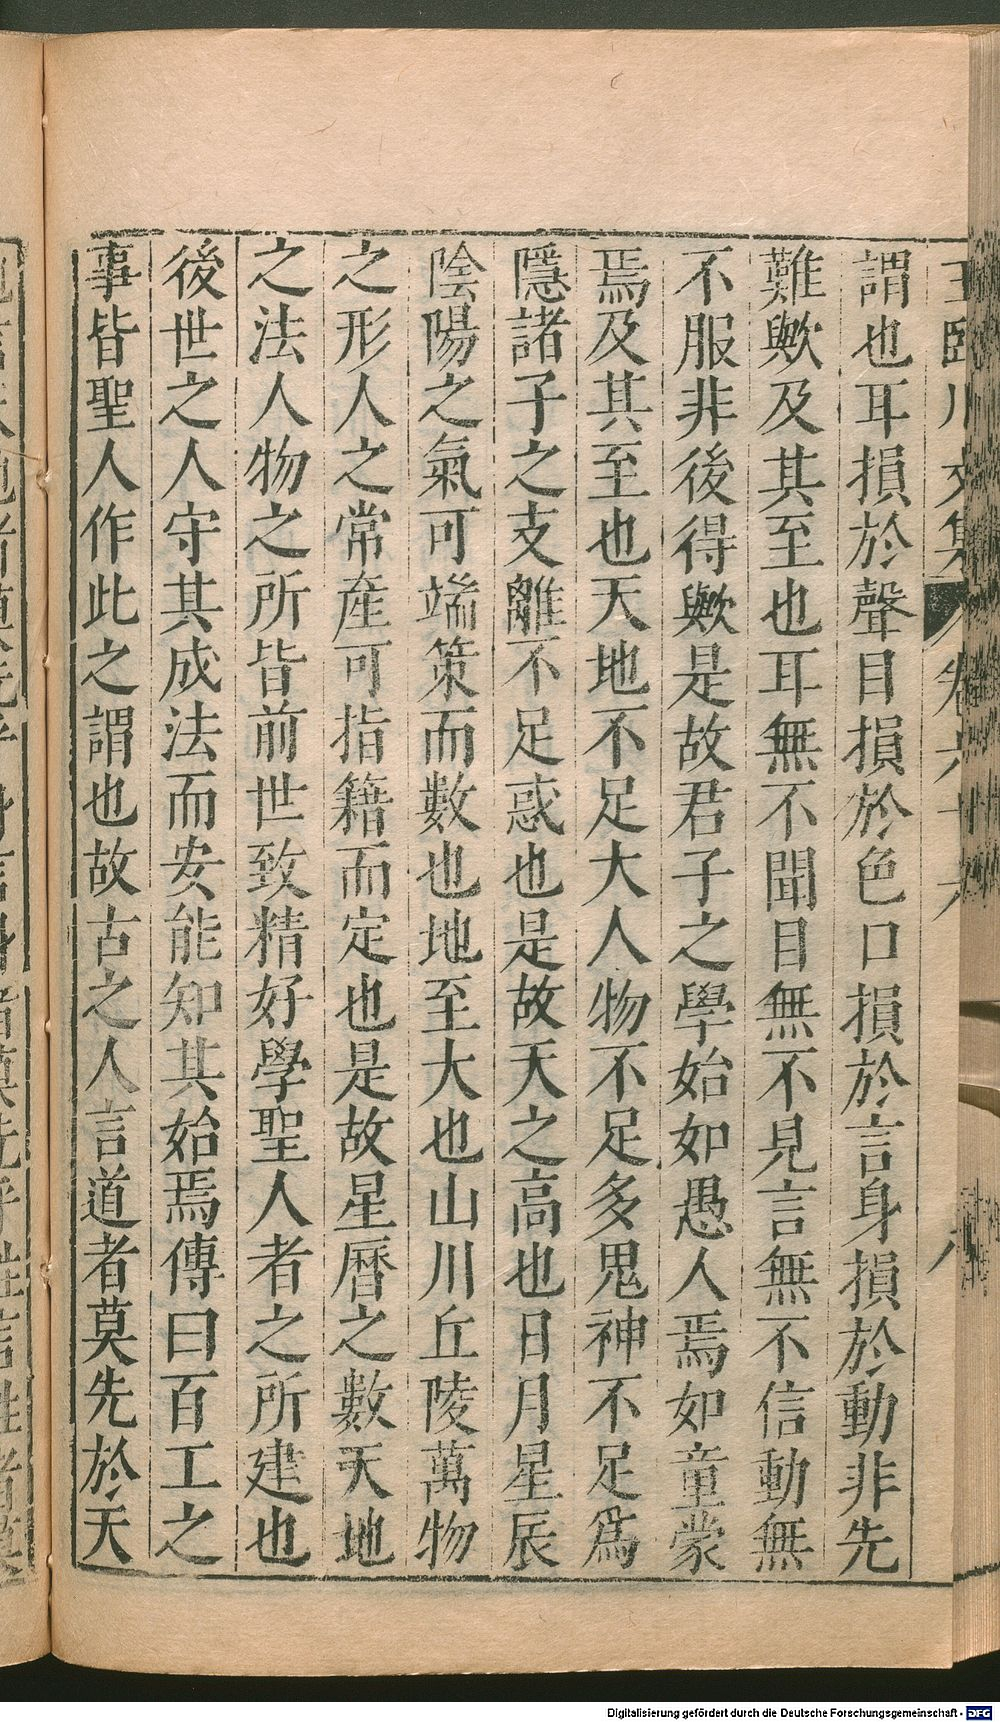 謂也耳損於聲目損於色口損於言身損於動非先
難歟及其至也耳無不聞目無不見言無不信動無
不服非後得歟是故君子之學始如愚人焉如童蒙
焉及其至也天地不足大人物不足多鬼神不足爲
隱諸子之支離不足惑也是故天之高也日月星辰
陰陽之氣可端策而數也地至大也山川丘陵萬物
之形人之常産可指籍而定也是故星曆之數天地
之法人物之所皆前世致精好學聖人者之所建也
後世之人守其成法而安能知其始焉傳曰百工之
事皆聖人作此之謂也故古之人言道者莫先於天
Digitalisierung gefördert durch die Deutsche Forschungsgemeinschaft - DFG